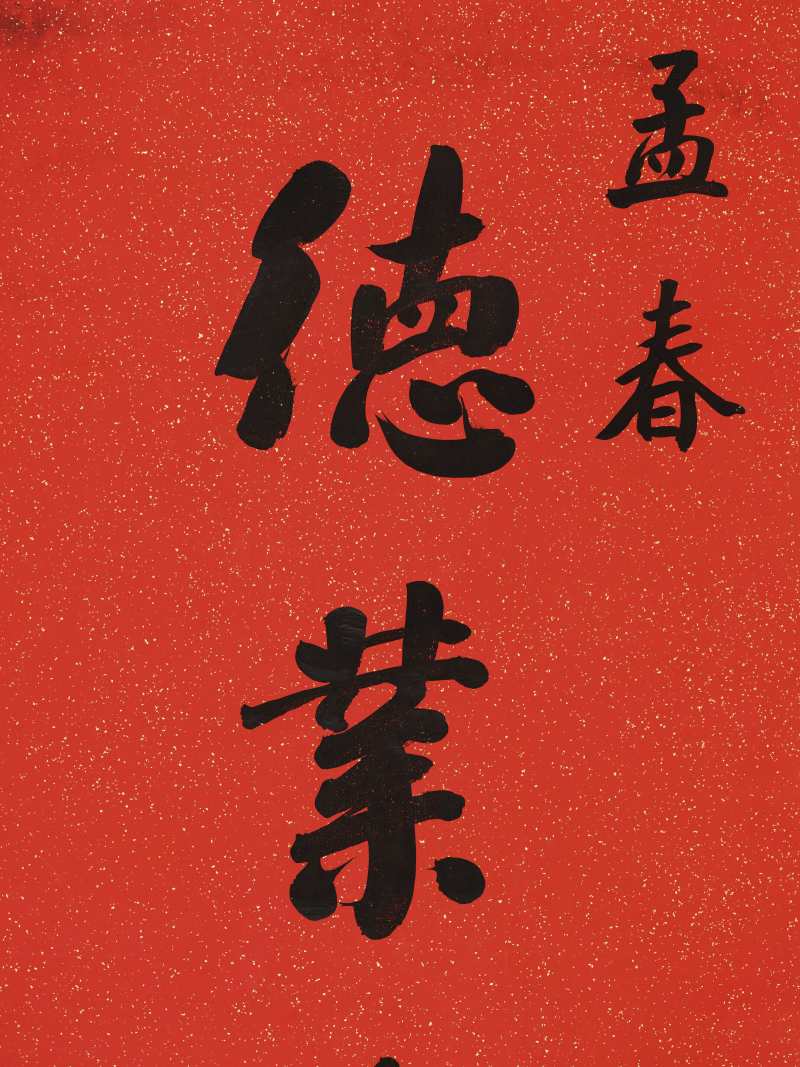 孟春
德業